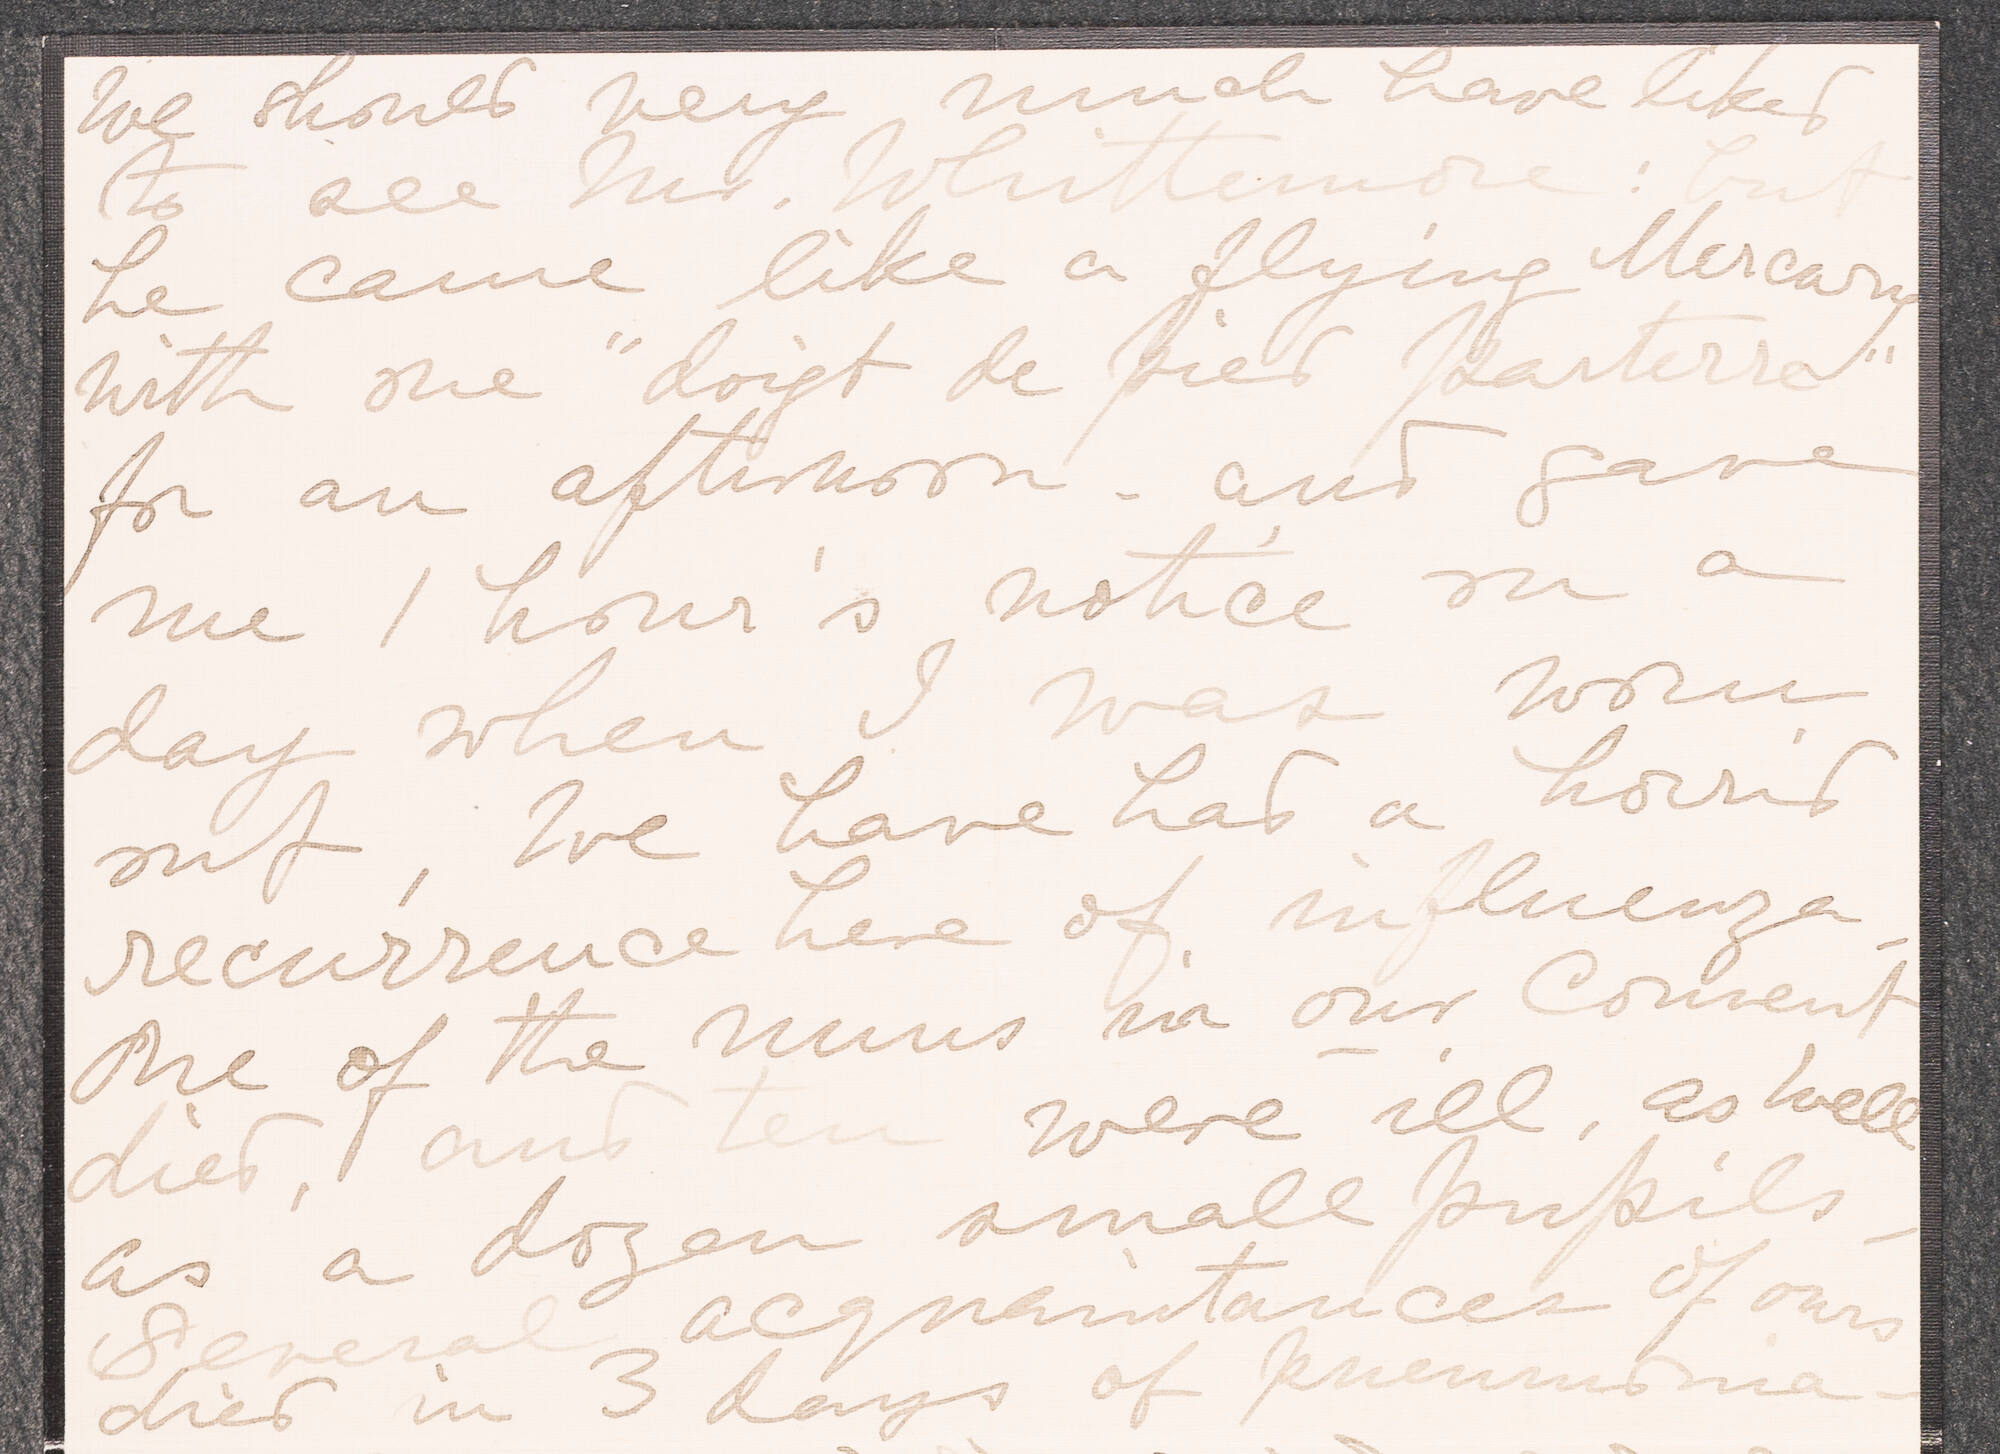 We should very much have liked
to see Mr. Whittemore: but
he came like a flying Mercury
with one "doigt de pied parterre"
for an afternoon - and gave
me 1 hour's notice on a
day when I was worn
out, We have had a horrid
recurrence here of influenza -
One of the nuns in our Convent
died, and ten were ill, as well
as a dozen small pupils -
Several acquaintances of ours
died in 3 days of pneumonia -